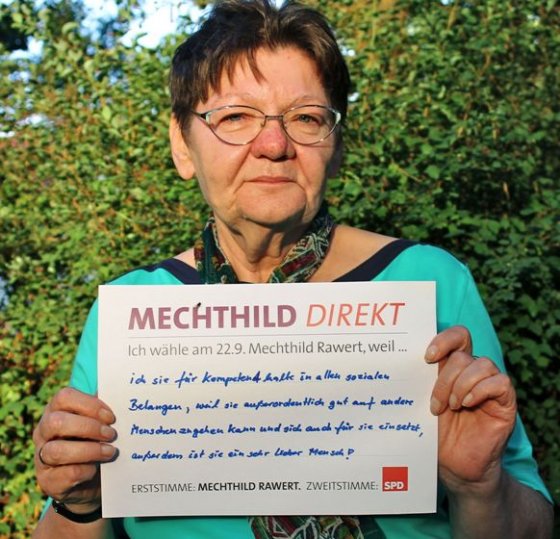 MECHTHILD DIREKT
Ich wähle am 22.9. Mechthild Rawert, weil ...
ich sie für kompetent halte in allen sozialen
Belangen, weil sie außerordentlich gut auf andere
Menschen zugehen kann und sich auch für sie einsetzt,
außerdem ist sie ein sehr lieber Mensch!
ERSTSTIMME: MECHTHILD RAWERT. ZWEITSTIMME: SPD